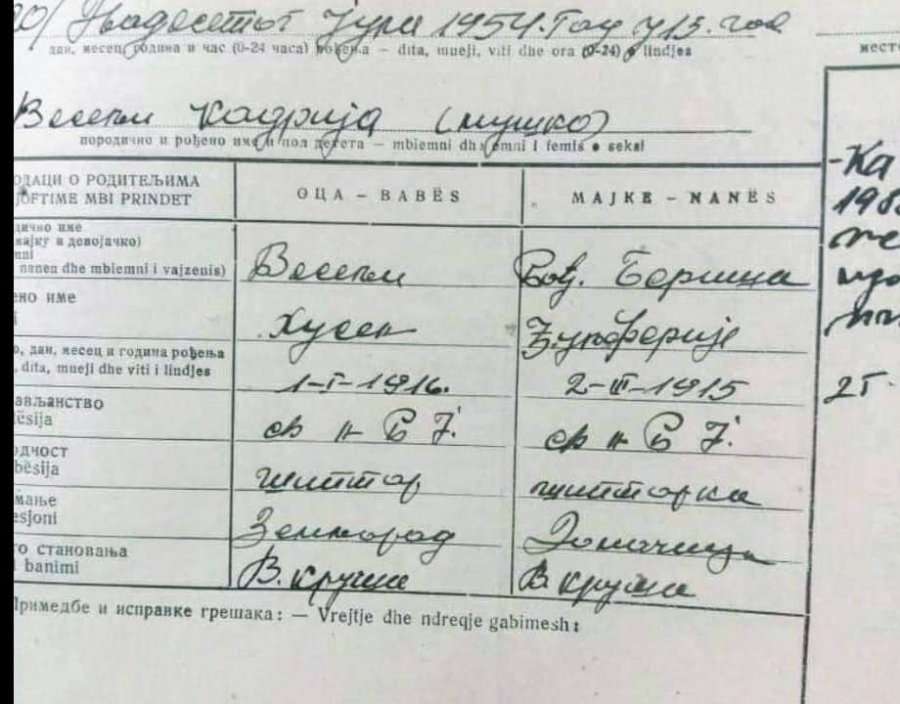 20/ Двадесетог Јула 1954. год у 13. час
дан, месец, година и час (0-24 часа) рођења — dita, mueji, viti dhe ora (0-24) e lindjes
место
Весељи Кадрија (мушко)
породично и рођено име и пол детета — mbiemni dhe emni i femis e seksi
ОДАЦИ О РОДИТЕЉИМА
JOFTIME MBI PRINDET
ОЦА — BABËS
МАЈКЕ — NANËS
дично име
мајку и девојачко)
mni
nanen dhe mbiemni i vajzenis)
Весељи
Бериша
ено име
i
Хусен
о, дан, месец и година рођења
, dita, mueji dhe viti i lindjes
1-I-1916.
2-III-1915
ављанство
ësija
Ј.
Ј.
одност
bësija
шиптар
шиптарка
мање
esjoni
Земљорад
Домаћица
о становања
i banimi
В. Круша
В Круша
Примедбе и исправке грешака: — Vrejtje dhe ndreqje gabimesh:
-Ка
198